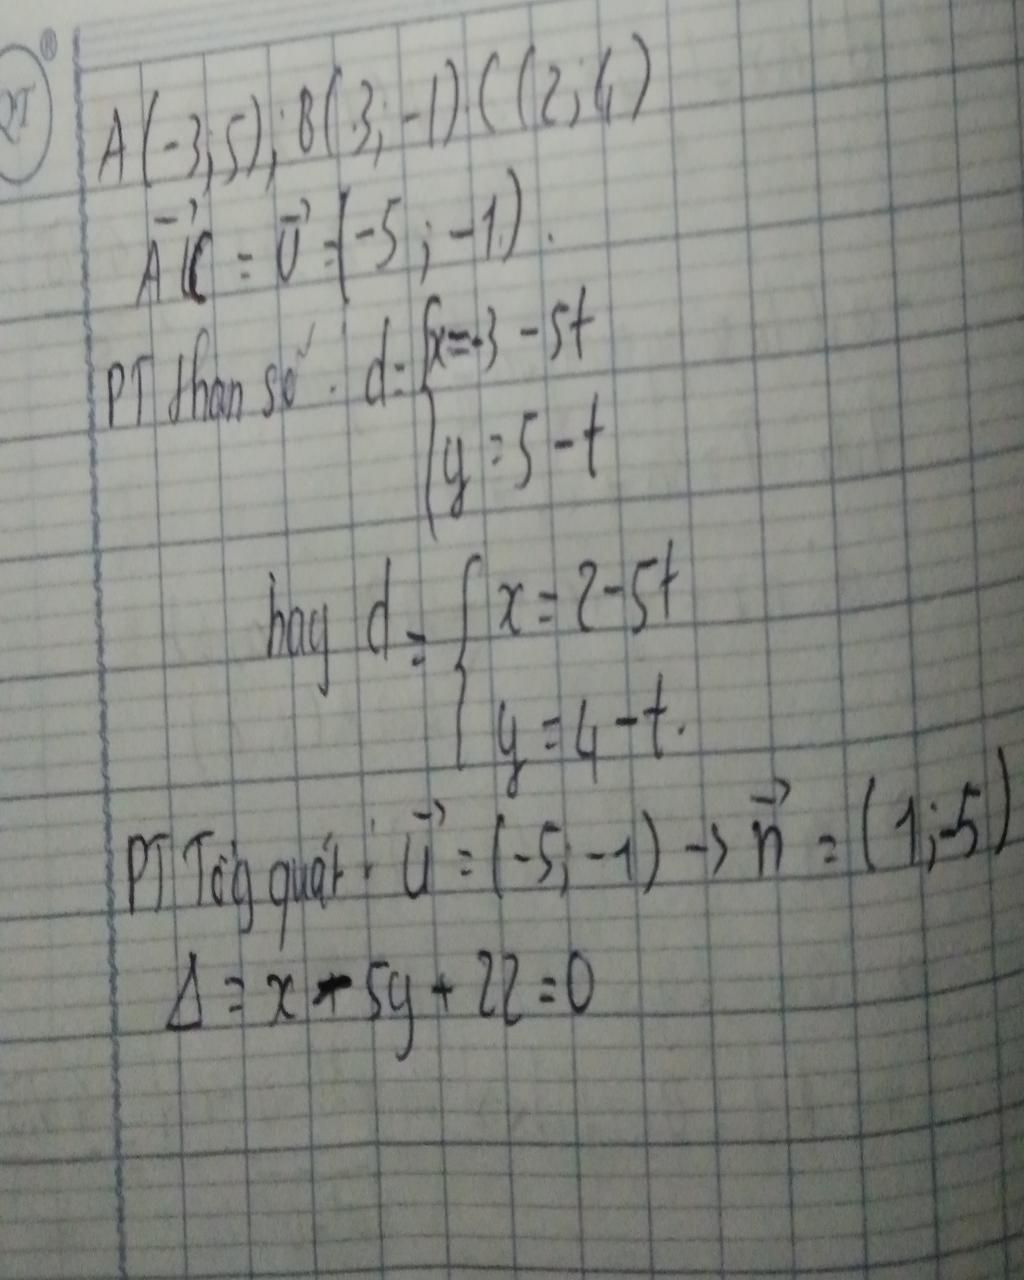 A(-3;5); B(3;-1) C(2;4)
AC⃗ = U⃗ = (-5; -1).
PT than số. d = { x = -3 - 5t
y = 5 - t
hay d = { x = 2 - 5t
y = 4 - t.
PT Tổg quát: u⃗ = (-5; -1) → n⃗ = (1; -5)
Δ = x - 5y + 22 = 0